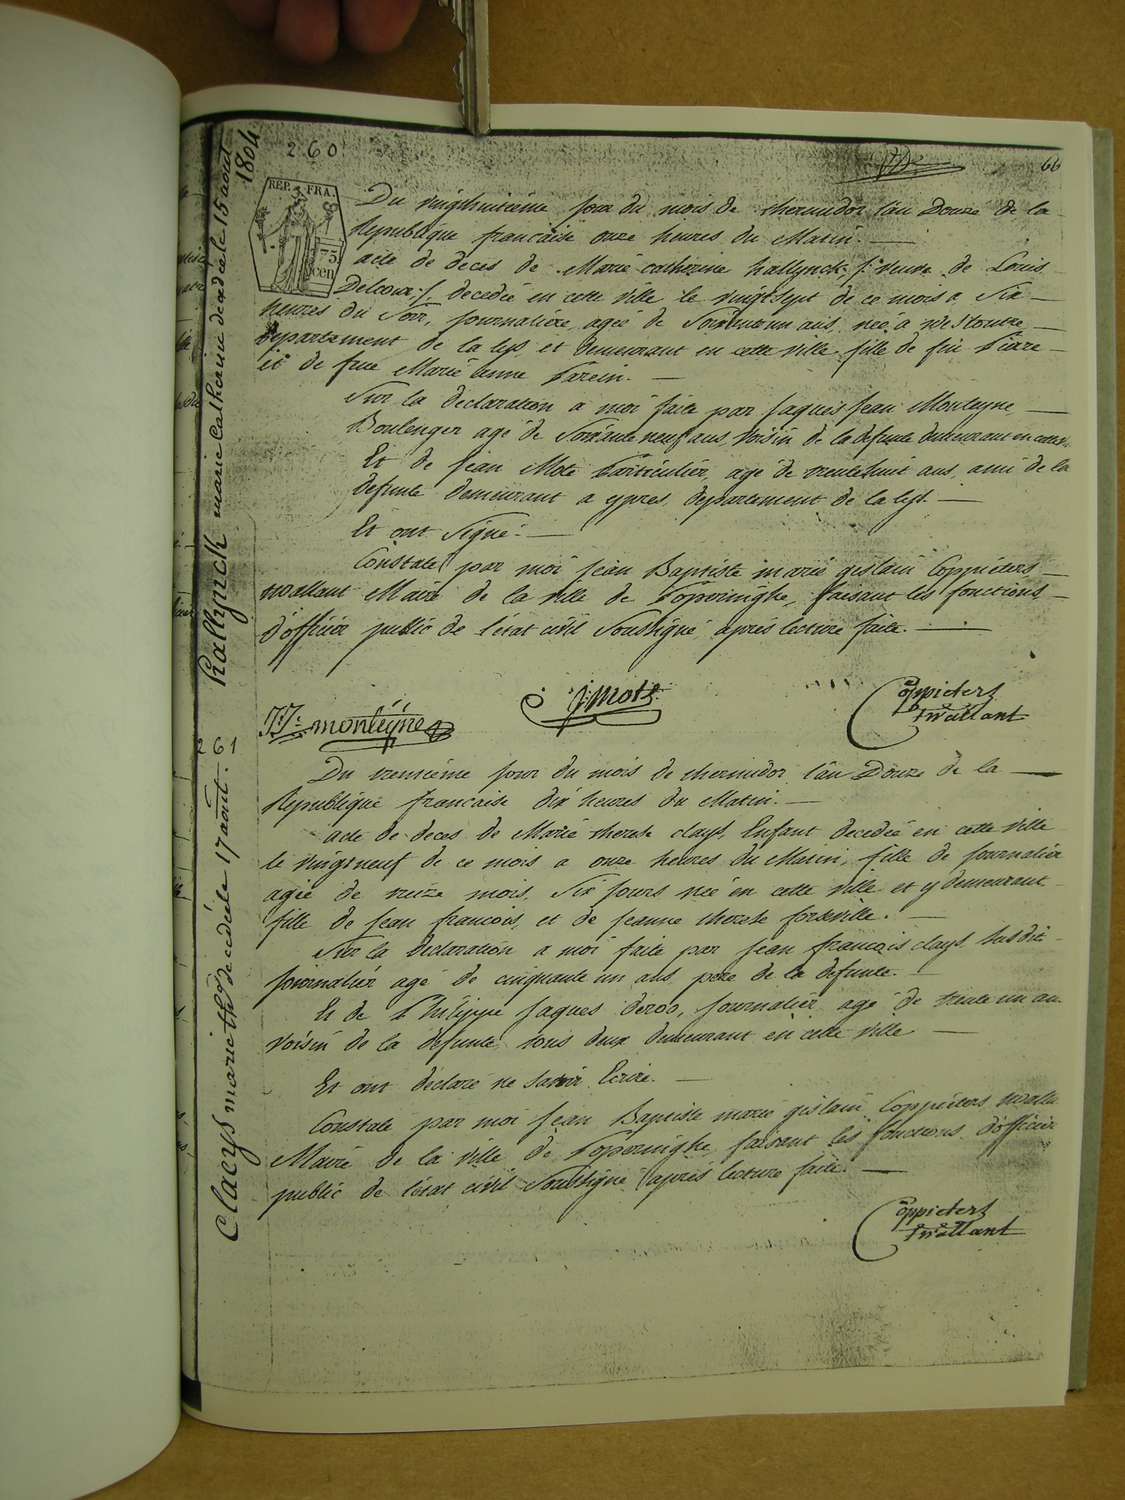 260
66
1804
REP. FRA.
75
cen
Kallynck marie Catharine decedée le 15 août
Du vingthuitiéme jour du mois de thermidor l'an Douze de la
Republique francaise onze heures du Matin. —
acte de deces de Marie catherine kallynck /: veuve de Louis
Delcour :/, decedée en cette ville le vingtsept de ce mois a Six
heures du Soir, journaliére, agée de ans, née a Westoutre
Departement de la lys et demeurant en cette ville fille de feu Piere
et de feue Marie Anne
Sur la declaration a moi faite par Jaques Jean Monteyne
Boulenger agé de Soixante neuf ans, voisin de la defunte demeurant en cette
Et de Jean Mote Particuliér, agé de trentehuit ans, ami de la
defunte demeurant a ypres, departement de la lys. —
Et ont Signé. —
Constaté par moi Jean Baptiste marie gislain Coppieters
wallant Maire de la ville de Poperinghe, faisant les fonctions
d'officier public de l'état civil Soussigné, aprés lecture faite. —
J. J. monteyne
J. Mote
Coppieters
twallant
261
Claeys marie th. decedée le 17 août
Du trentiéme jour du mois de thermidor l'an Douze de la —
Republique francaise dix heures du Matin. —
acte de deces de Marie therese clays, Enfant decedée en cette ville
le vingtneuf de ce mois a onze heures du Matin, fille de journaliér
agée de treize mois, Six jours née en cette ville et y demeurant
fille de Jean francois, et de Jeanne therese —
Sur la Declaration a moi faite par Jean francois clays susdit
journaliér agé de cinquante un ans, pere de la defunte. —
Et de Philippe Jaques Deroo, journaliér agé de trente un ans
voisin de la defunte, tous deux demeurant en cette ville —
Et ont declaré ne savoir Ecrire. —
Constaté par moi Jean Baptiste marie gislain Coppieters
Maire de la ville de Poperinghe, faisant les fonctions d'officier
public de l'état civil Soussigné aprés lecture faite. —
Coppieters
twallant